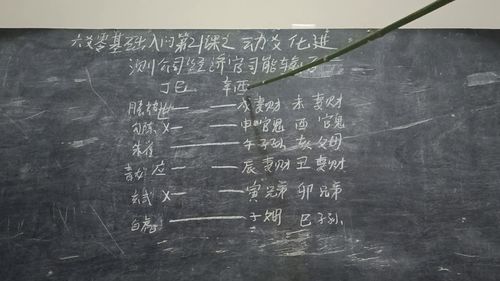 六爻零基础入门第21课之动爻化進
测公司经济官司能输否
丁巳 辛酉
腾蛇 世 戌妻财 未妻财
勾陈 X 申官鬼 酉官鬼
朱雀 午子孙 亥父母
青龙 应 辰妻财 丑妻财
玄武 X 寅兄弟 卯兄弟
白虎 子父母 巳子孙